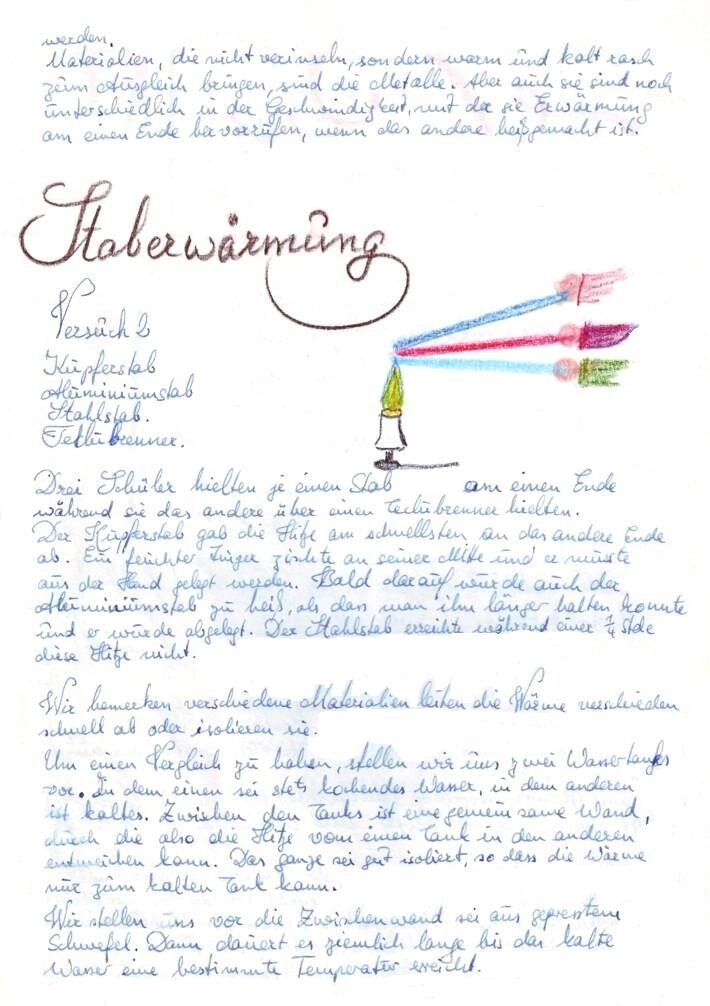 werden.
Materialien, die nicht verinseln, sondern warm und kalt rasch
zum Ausgleich bringen, sind die Metalle. Aber auch sie sind noch
unterschiedlich in der Geschwindigkeit, mit der sie Erwärmung
am einen Ende hervorrufen, wenn das andere heißgemacht ist.
Staberwärmung
Versuch 2
Kupferstab
Aluminiumstab
Stahlstab.
Teclubrenner.
Drei Schüler hielten je einen Stab am einen Ende
während sie das andere über einen Teclubrenner hielten.
Der Kupferstab gab die Hitze am schnellsten an das andere Ende
ab. Ein feuchter Finger zischte an seiner Mitte und er musste
aus der Hand gelegt werden. Bald darauf wurde auch der
Aluminiumstab zu heiß, als dass man ihn länger halten konnte
und er wurde abgelegt. Der Stahlstab erreichte während einer 1/4 Stde
diese Hitze nicht.
Wir bemerken verschiedene Materialien leiten die Wärme verschieden
schnell ab oder isolieren sie.
Um einen Vergleich zu haben, stellen wir uns zwei Wassertanks
vor. In dem einen sei stets kochendes Wasser, in dem anderen
ist kaltes. Zwischen den Tanks ist eine gemeinsame Wand,
durch die also die Hitze vom einen Tank in den anderen
entweichen kann. Das ganze sei gut isoliert, so dass die Wärme
nur zum kalten Tank kann.
Wir stellen uns vor die Zwischenwand sei aus gepresstem
Schwefel. Dann dauert es ziemlich lange bis das kalte
Wasser eine bestimmte Temperatur erreicht.